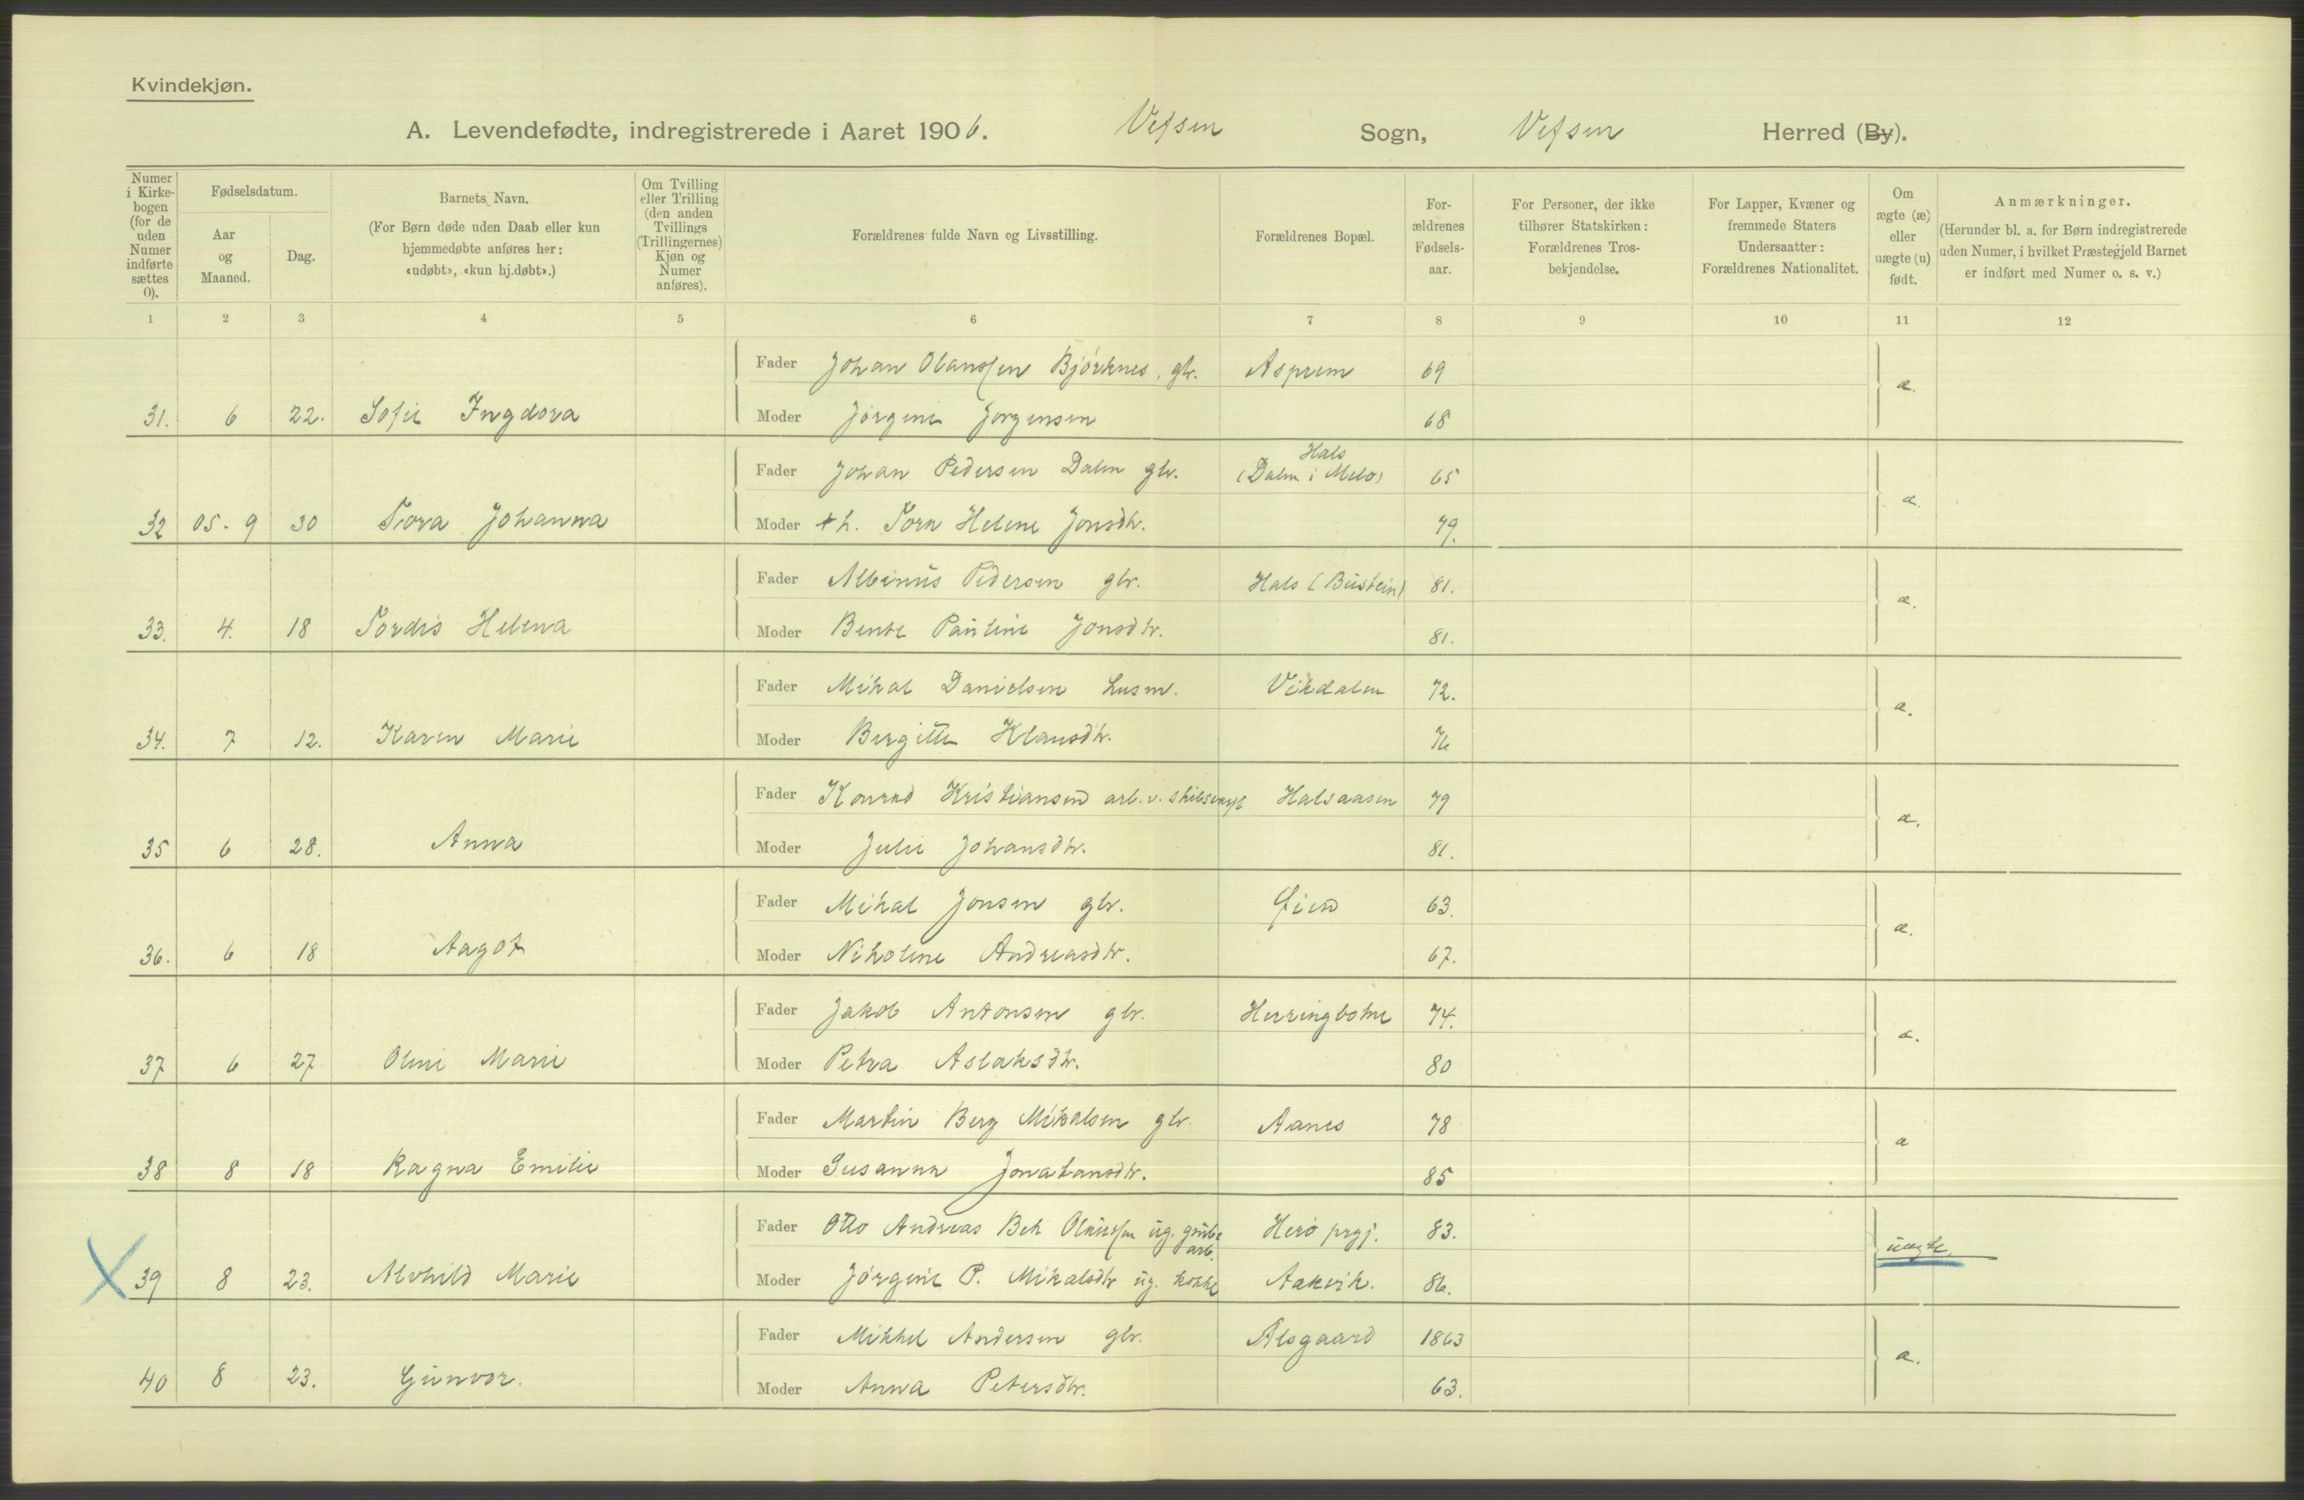 Kvindekjøn.
A. Levendefødte, indregistrerede i Aaret 1906. Vefsen Sogn, Vefsen Herred (By).
Numer i Kirkebogen (for de uden Numer indførte sættes 0).
Fødselsdatum.
Aar og Maaned.
Dag.
Barnets Navn.
(For Børn døde uden Daab eller kun hjemmedøbte anføres her: «udøbt», «kun hj.døbt».)
Om Tvilling eller Trilling (den anden Tvillings (Trillingernes) Kjøn og Numer anføres).
Forældrenes fulde Navn og Livsstilling.
Forældrenes Bopæl.
Forældrenes Fødselsaar.
For Personer, der ikke tilhører Statskirken: Forældrenes Trosbekjendelse.
For Lapper, Kvæner og fremmede Staters Undersaatter: Forældrenes Nationalitet.
Om ægte (æ) eller uægte (u) født.
Anmærkninger.
(Herunder bl. a. for Børn indregistrerede uden Numer, i hvilket Præstegjeld Barnet er indført med Numer o. s. v.)
1 2 3 4 5 6 7 8 9 10 11 12
Fader Johan Olanssen Bjørknes, gbr. Asprem 69 æ.
31. 6 22. Sofie Ingdora Moder Jørgine Jørgensen 68
Hals
Fader Johan Pedersen Dalen gbr. (Dalen i Melø) 65 æ.
32 05. 9 30 Tora Johanna Moder th. Tora Helene Jonsdtr. 79.
Fader Albinus Pedersen gbr. Hals (Bustein) 81. æ.
33. 4. 18 Tordis Helena Moder Bente Pauline Jonsdtr. 81.
Fader Mikal Danielsen husm. Vikdalen 72. æ.
34. 7 12. Karen Marie Moder Bergitte Klausdtr. 76
Fader Konrad Kristiansen arb. v. Halsaasen 79 æ.
35 6 28. Anna Moder Julie Johansdtr. 81.
Fader Mikal Jonsen gbr. Øien 63. æ.
36. 6 18 Aagot Moder Nikoline Andreasdtr. 67.
Fader Jakob Antonsen gbr. Herringbotne 74. æ.
37 6 27 Oline Marie Moder Petra Aslaksdtr. 80
Fader Martin Berg Mikalsen gbr. Aanes 78 æ
38 8 18 Ragna Emilie Moder Susanna Jonatansdtr. 85
Fader Otto Andreas Bek Olaussen ug. grube arb. Herø prgj. 83. uægte.
39 8 23. Alvhild Marie Moder Jørgine P. Mikalsdtr ug. kokke Aakvik. 86.
Fader Mikkel Andersen gbr. Alsgaard 1863 æ.
40 8 23. Gunvor. Moder Anna Petersdtr. 63.